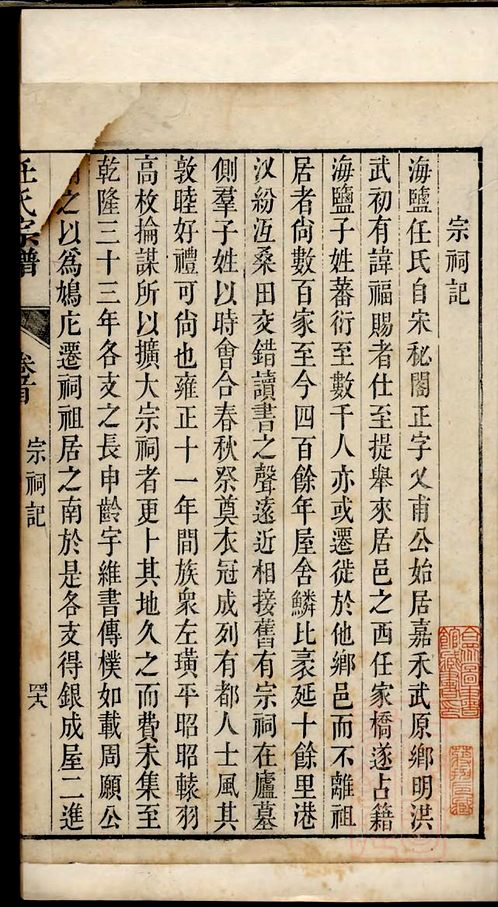 宗祠記
海鹽任氏自宋秘閣正字乂甫公始居嘉禾武原鄉明洪
武初有諱福賜者仕至提舉來居邑之西任家橋遂占籍
海鹽子姓蕃衍至數千人亦或遷徙於他鄉邑而不離祖
居者尙數百家至今四百餘年屋舍鱗比袤延十餘里港
汊紛沍桑田交錯讀書之聲遠近相接舊有宗祠在廬墓
側羣子姓以時會合春秋祭奠衣冠成列有都人士風其
敦睦好禮可尙也雍正十一年間族衆左璜平昭昭轅羽
高枚掄謀所以擴大宗祠者更卜其地久之而費未集至
乾隆三十三年各支之長申齡字維書傳樸如載周願公
之以爲鳩庀遷祠祖居之南於是各支得銀成屋二進
任氏宗譜
卷首
宗祠記
四六